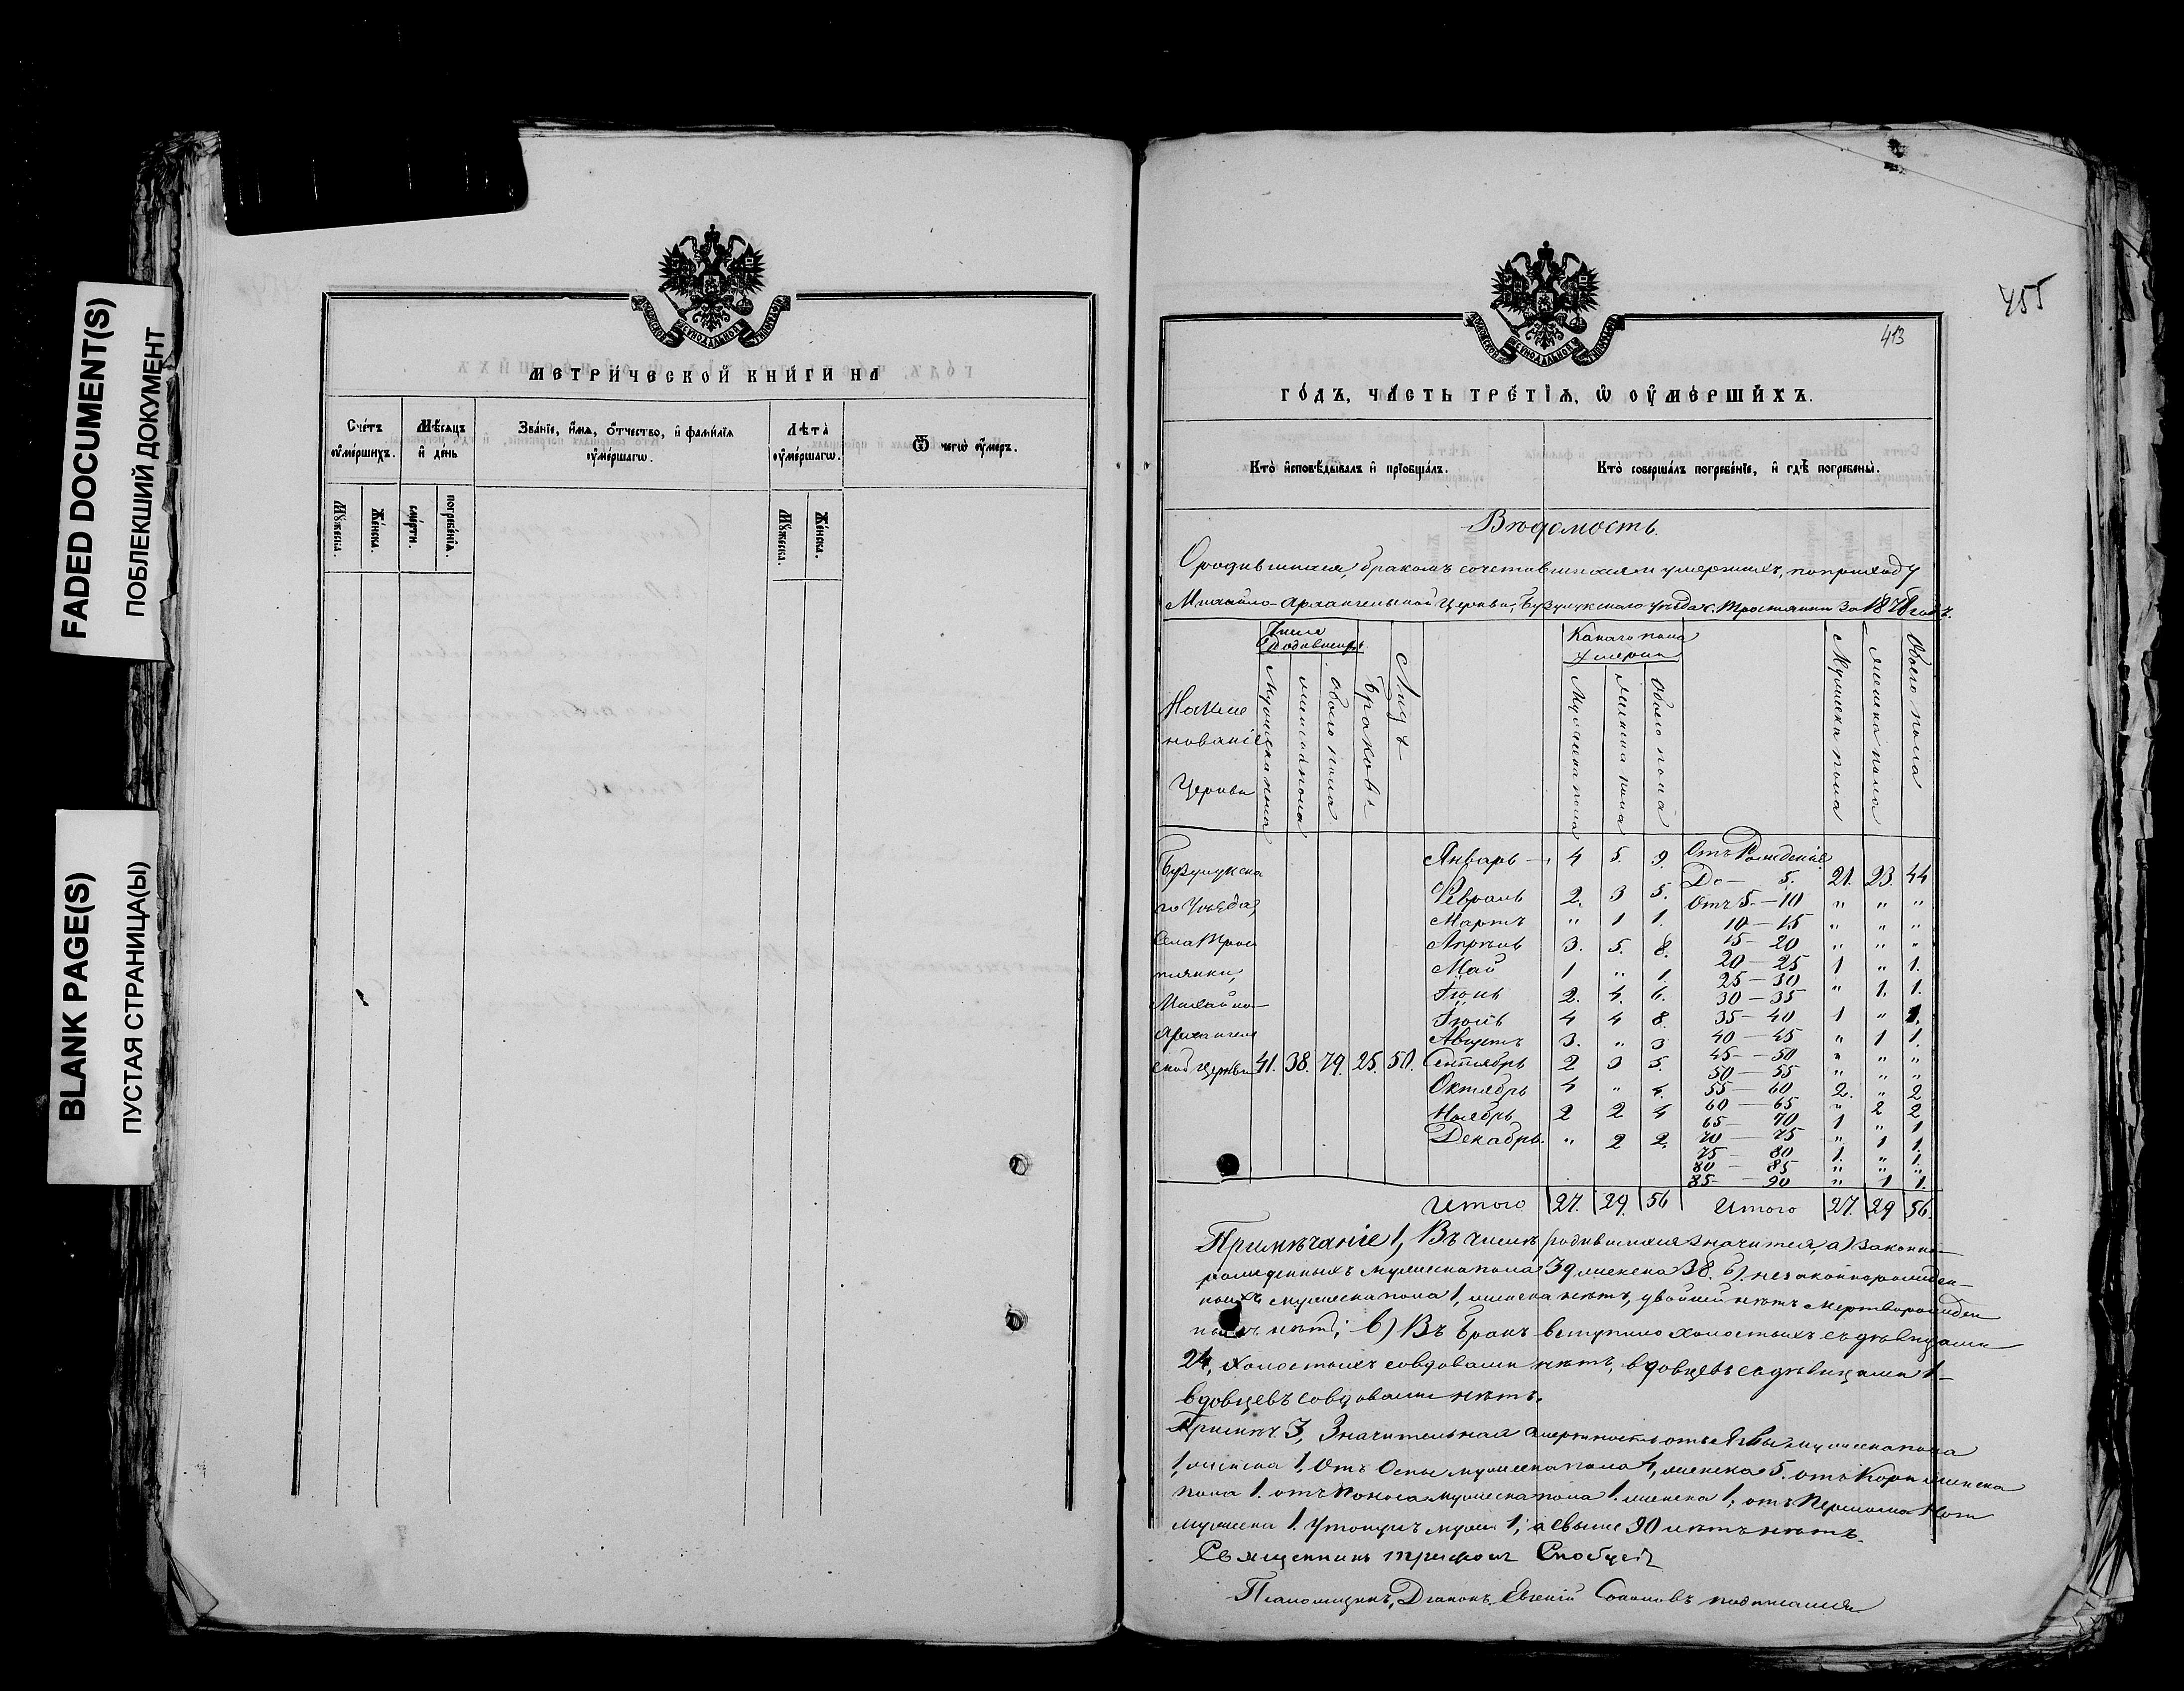 FADED DOCUMENT(S)
ПОБЛЕКШИЙ ДОКУМЕНТ
BLANK PAGE(S)
ПУСТАЯ СТРАНИЦА(Ы)
МЕТРИ́ЧЕСКОЙ КНИ́ГИ НА
Сче́тъ ѹ҆ме́ршихъ.
Мѣ́сяцъ и҆ де́нь
Зва́нїе, и҆́мѧ, ѻ҆́тчество, и҆ фами́лїѧ ѹ҆ме́ршагѡ.
Лѣ́та ѹ҆ме́ршагѡ.
Ѿ чегѡ̀ ѹ҆́меръ.
Мꙋ́жеска.
Же́нска.
сме́рти.
погребе́нїѧ.
Мꙋ́жеска.
Же́нска.
455
413
ГО́ДЪ, ЧА́СТЬ ТРЕ́ТЇѦ, Ѡ҆ ОУ҆МЕ́РШИХЪ.
Кто̀ и҆сповѣ́дывалъ и҆ прїобща́лъ.
Кто̀ соверша́лъ погребе́нїе, и҆ гдѣ̀ погребены̀.
Вѣдомость.
О родившихся, бракомъ сочетавшихся и умершихъ, по приходу
Михайло-Архангельской Церкви, Бузулукскаго уѣзда с. Тростянки за 18 годъ.
Наиме
нованіе
Церкви
Число Родившихся
Мужеска пола
женска пола
обоего пола
Браковъ
Лицъ
Какаго пола умерши
Мужеска пола
женска пола
Обоего пола
Мужеска пола
женска пола
Обоего пола
Бузулукска
го Уѣзда,
Села Трос
тянки,
Михайло-
Архангель
ской церкви 41. 38. 79. 25. 50.
Январь 4 5. 9.
Февраль 2. 3 5.
Мартъ " 1 1.
Апрѣль 3. 5. 8.
Май 1 " 1.
Іюнь 2. 4. 6.
Іюль 4 4 8.
Августъ 3. " 3
Сентябрь 2 3 5.
Октябрь 4 " 4.
Ноябрь 2 2 4
Декабрь. " 2 2.
Отъ Рожденія
До — 5. 21. 23. 44
Отъ 5. — 10 " " "
10 — 15 " " "
15 — 20 " " "
20 — 25 1 " 1.
25 — 30 " 1. 1.
30 — 35
35 — 40 1 " 1.
40 — 45 " 1 1.
45 — 50 " " "
50 — 55 " " "
55 — 60 2. " 2
60 — 65 " 2 2
65 — 70 1 " 1
70 — 75 " 1 1.
75 — 80 1. " 1.
80 — 85 " " "
85 — 90 " 1 1.
Итого 27. 29. 56 Итого 27. 29 56.
Примѣчаніе 1, Въ числѣ родившихся значится, а) законно-
рожденныхъ мужеска пола 39 женска 38. б) незаконнорожден-
ныхъ мужеска пола 1, женска нѣтъ, двойней нѣтъ мертворожден
ныхъ нѣтъ; в) Въ бракъ вступило холостыхъ съ дѣвицами
24, холостыхъ со вдовами нѣтъ, вдовцевъ съ дѣвицами 1-
вдовцевъ со вдовами нѣтъ.
Примѣч. 3, Значительная смертность отъ мужеска пола
1, женска 1. Отъ Оспы мужеска пола 4, женска 5. отъ Кори женска
пола 1. отъ Поноса мужеска пола 1. женска 1; отъ Перелома Ноги
мужеска 1. Утонулъ муж. 1; а свыше 90 лѣтъ нѣтъ.
Священникъ Трифонъ
Псаломщикъ, Діаконъ Евгеній Соколовъ подписался